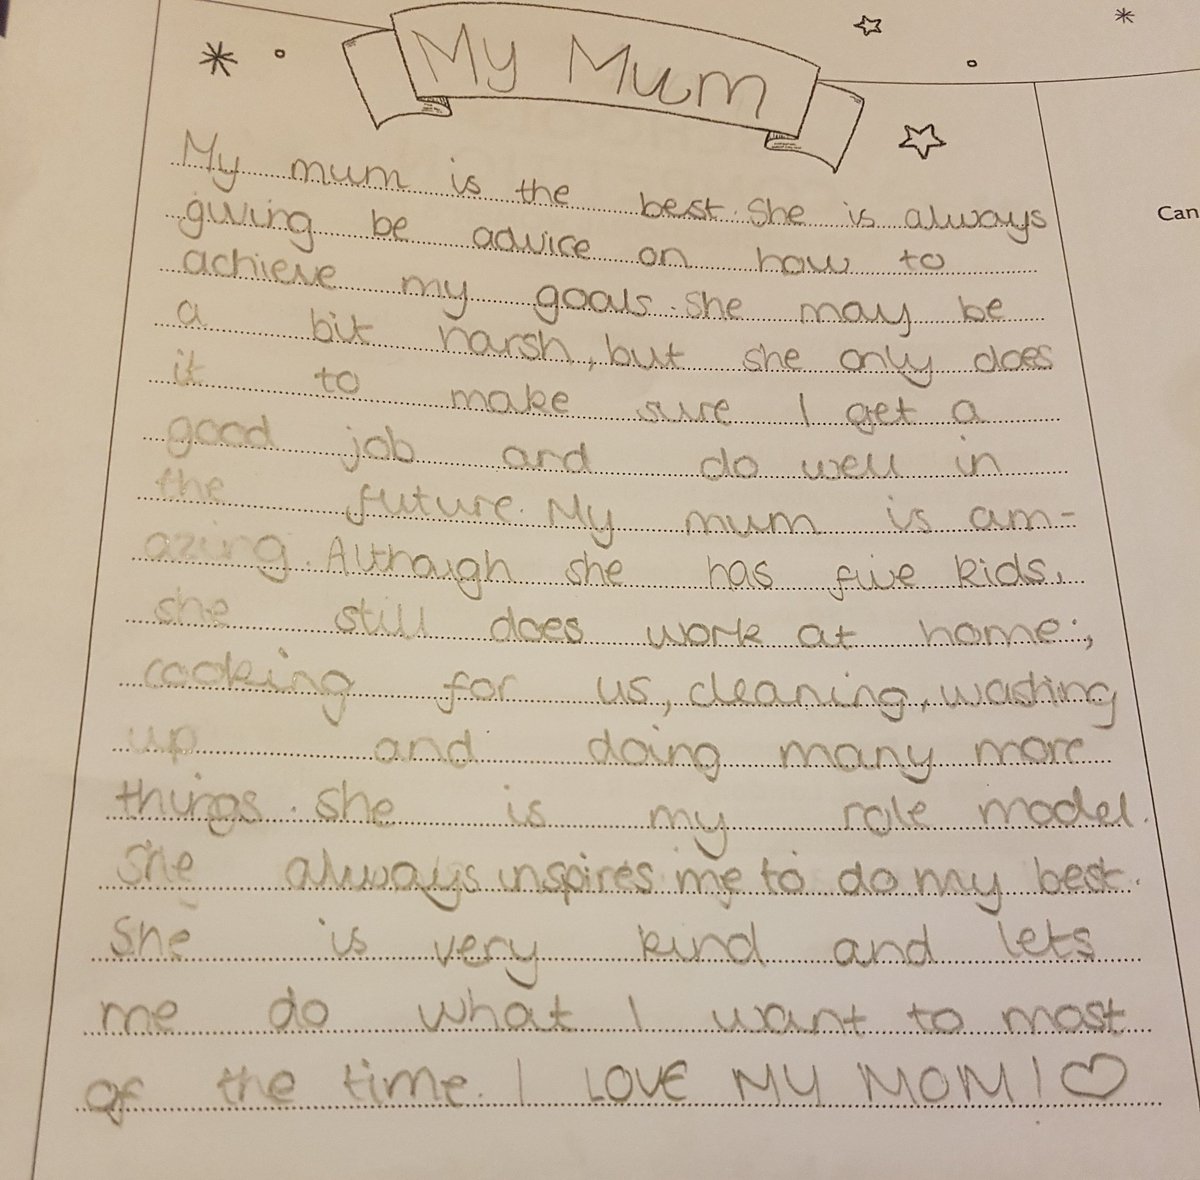 My Mum
My mum is the best. She is always
giving be advice on how to
achieve my goals. She may be
a bit harsh, but she only does
it to make sure I get a
good job and do well in
the future. My mum is am-
azing. Although she has five kids,
she still does work at home;,
cooking for us, cleaning, washing
up and doing many more
things. She is my role model.
She always inspires me to do my best.
She is very kind and lets
me do what I want to most
of the time. I LOVE MY MOM! ♡
Can